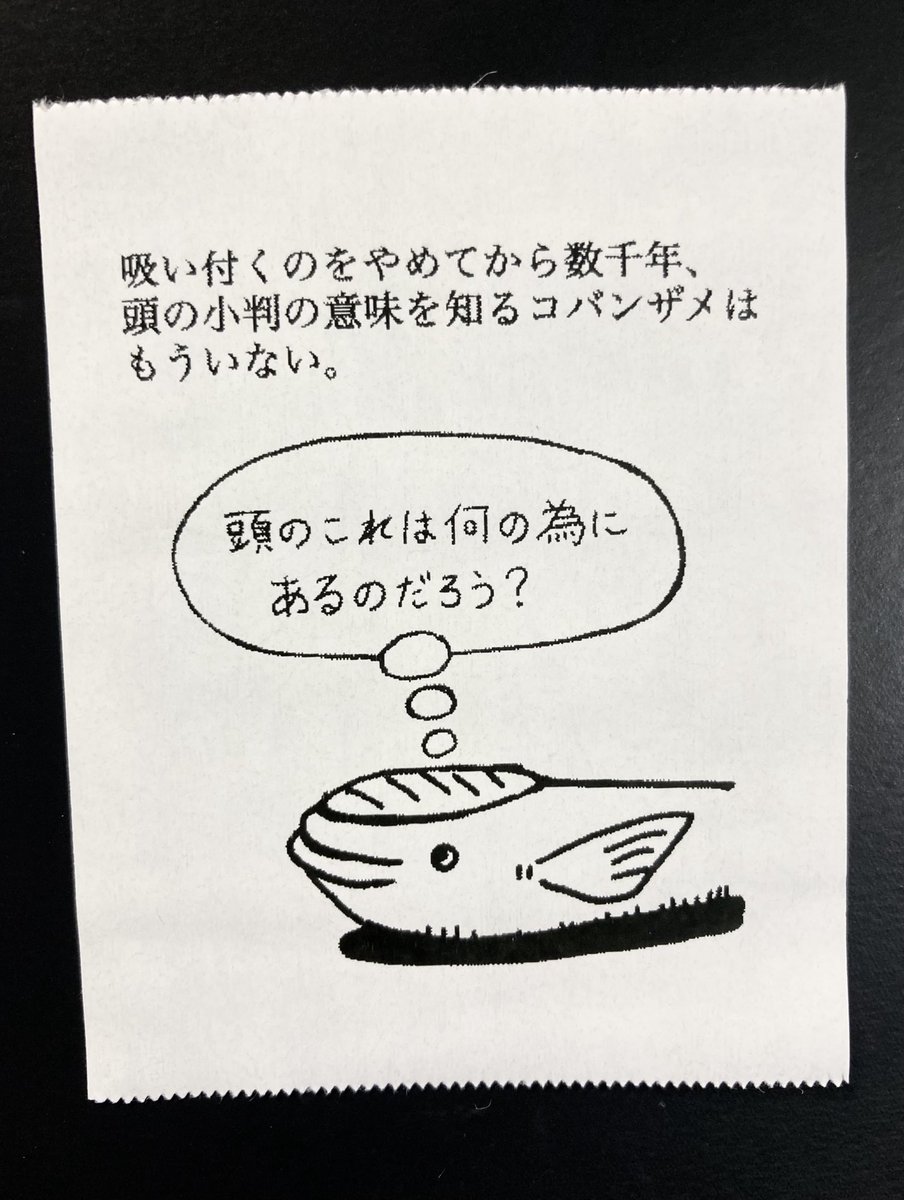 吸い付くのをやめてから数千年、
頭の小判の意味を知るコバンザメは
もういない。
頭のこれは何の為に
あるのだろう?